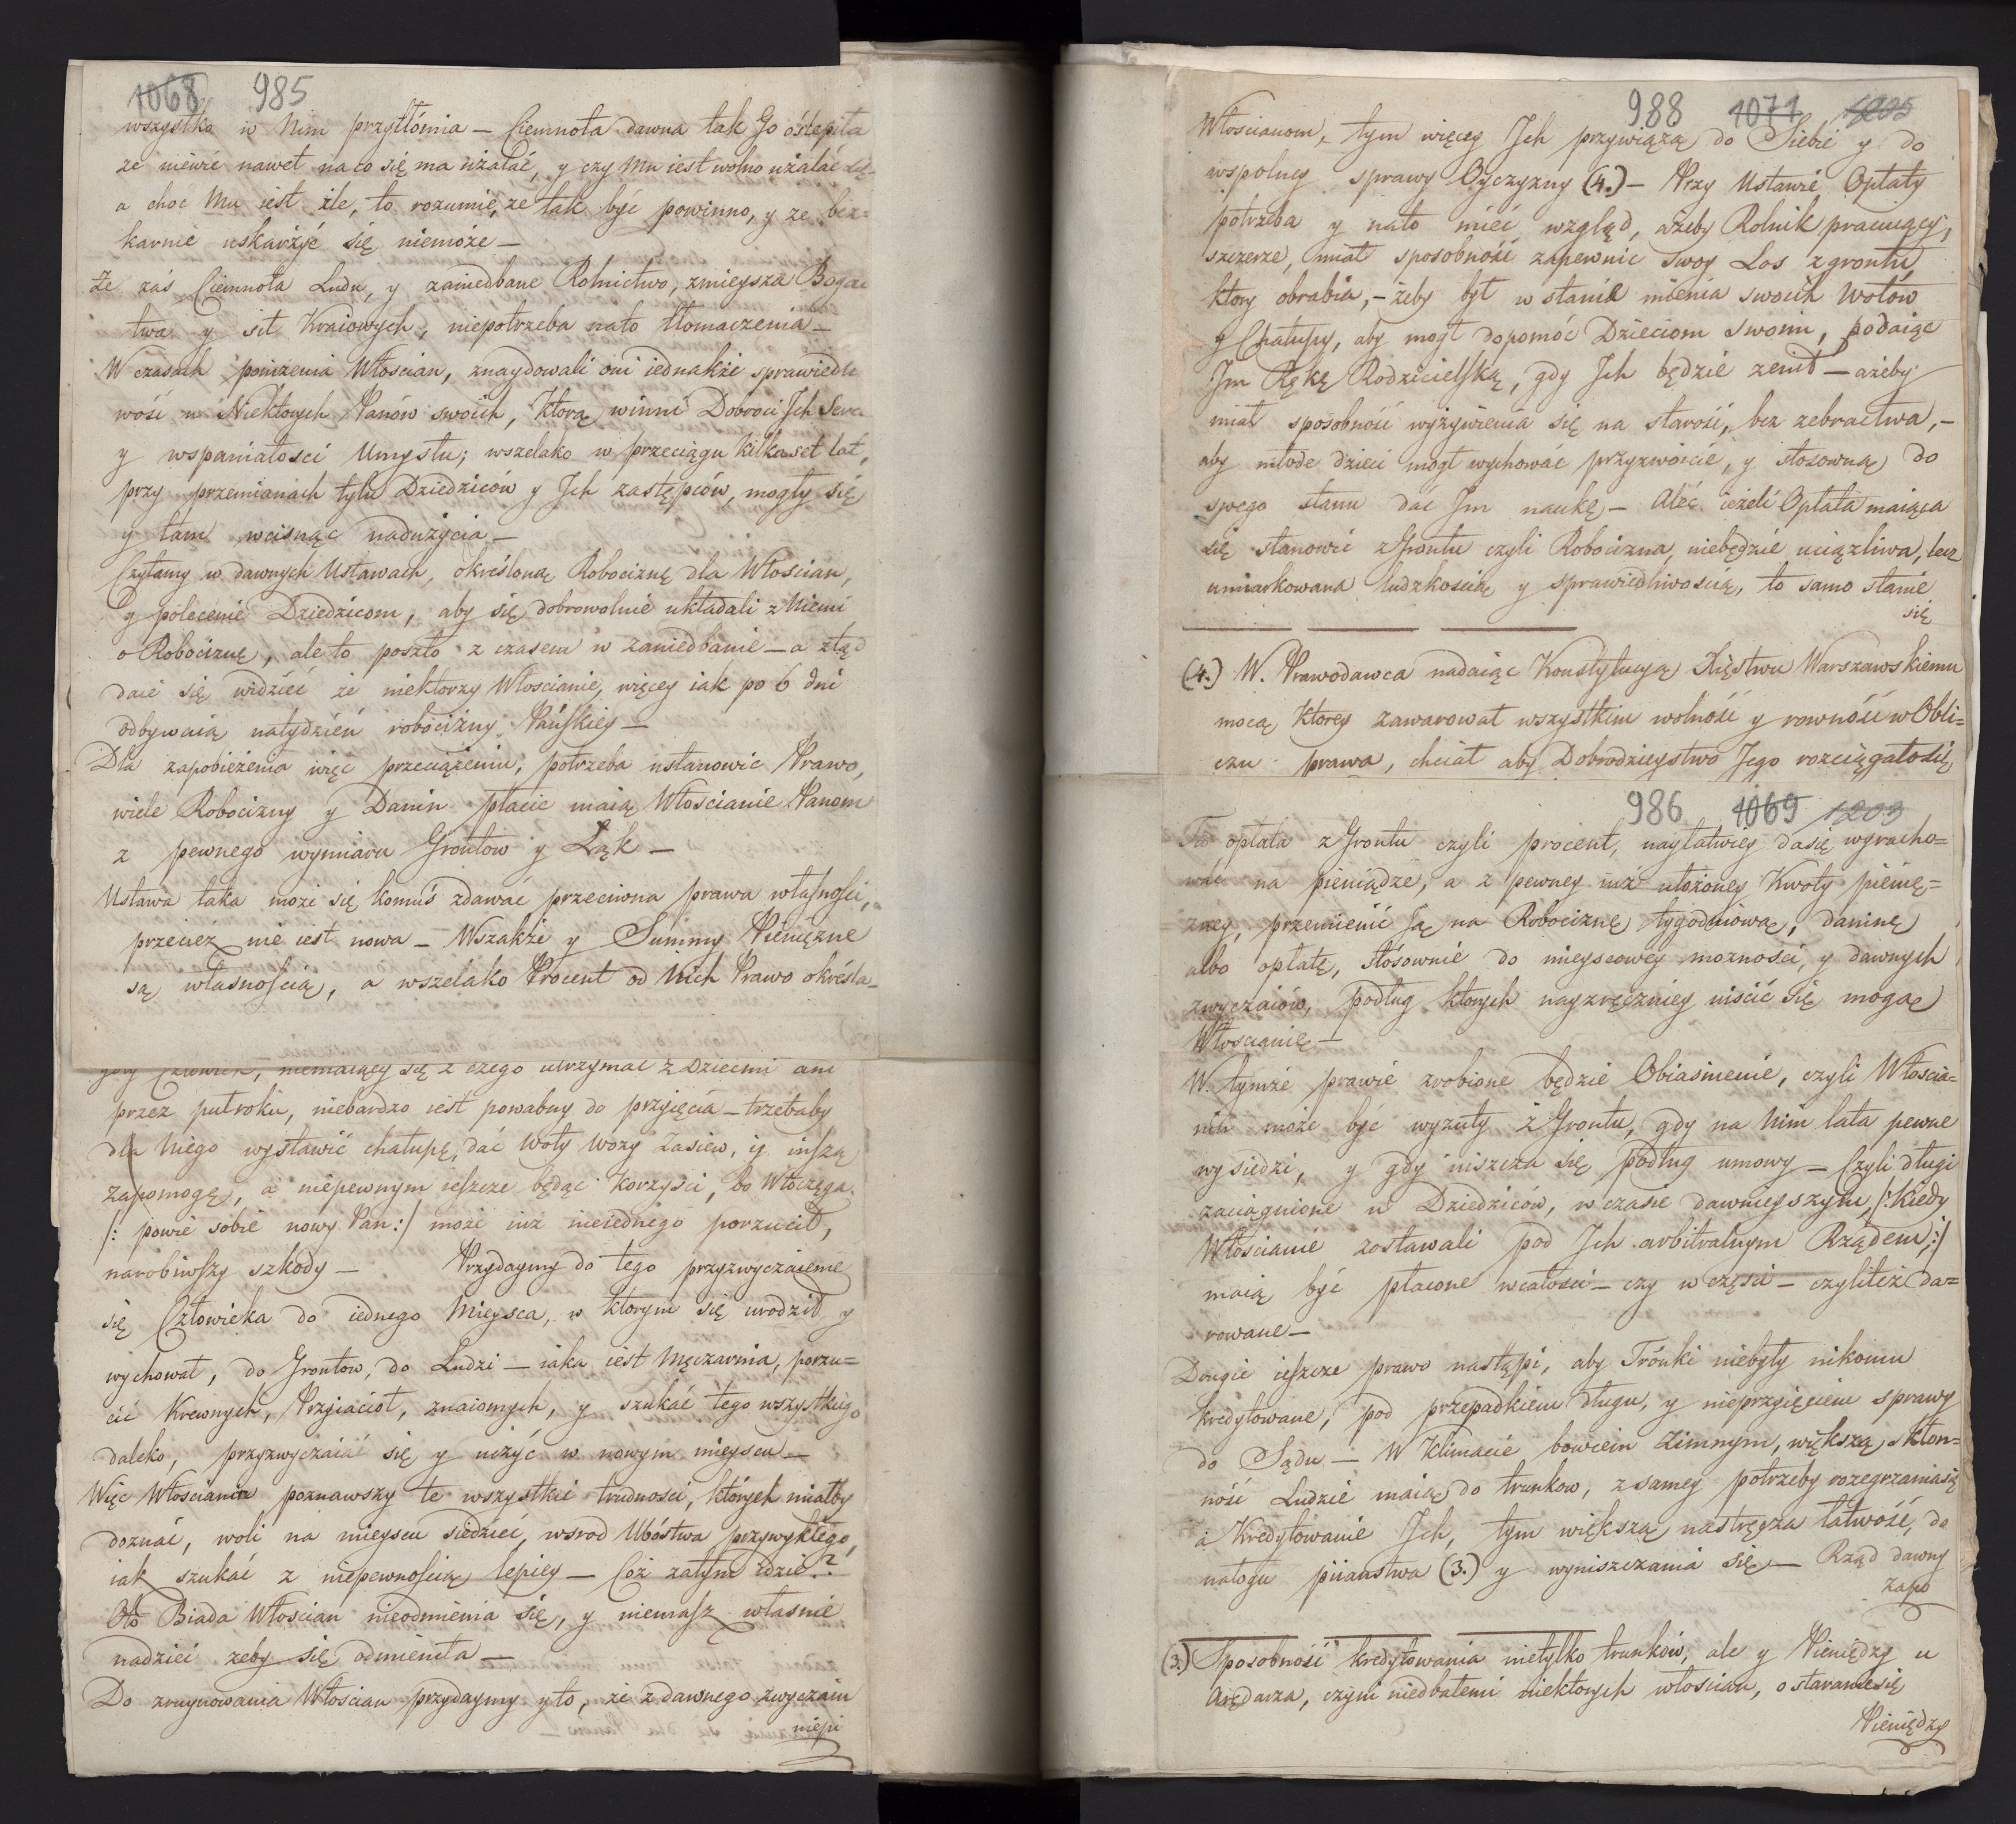 1068 985
wszystko w Nim przytłómia — Ciemnota dawna tak Go oślepiła
ze niewie nawet na co się ma użalać, y czy Mu iest wolno użalać się
a choc Mu iest źle, to rozumie, ze tak być powinno, y ze bez=
karnie uskarżyć się niemoże —
Że zaś Ciemnota Ludu, y zaniedbane Rolnictwo, zmieysza Bogac
twa y sił Kraiowych, niepotrzeba nato tłomaczenia —
W czasach poniżenia Włoscian, znaydowali oni iednakże sprawiedli
wość u Niektorych Panów swoich, Którą winni Dobroci Jch Serc
y wspaniałosci Umysłu; wszelako w przeciągu kilkaset lat,
przy przemianach tylu Dziedziców y Jch zastępców, mogły się
y tam wcisnąc nadużycia —
Czytamy w dawnych Ustawach, określoną Robociznę dla Włoscian,
y polecenie Dziedzicom, aby się dobrowolnie układali z Niemi
o Robociznę, ale to poszło z czasem w zaniedbanie — a ztąd
daie się widzieć że niektorzy Włoscianie, więcey iak po 6 dni
odbywaią natydzień robocizny Pańskiey —
Dla zapobieżenia więc przeciążeniu, potrzeba ustanowic Prawo,
wiele Robocizny y Danin płacic maią Włoscianie Panom
z pewnego wymiaru Grontow y Łąk —
Ustawa taka może się komuś zdawać przeciwna prawu własnosci,
przecież nie iest nowa — Wszakże y Summy Pieniężne
są własnoscią, a wszelako Procent od Nich Prawo okréśla=
gdby Człowiek, niemaiący się z czego utrzymac z Dziecmi ani
przez pułroku, niebardzo iest powabny do przyięcia — trzebaby
dla Niego wystawić chałupę, dać woły wozy zasiew, y inszą
zapomogę, a niepewnym ieszcze będąc korzysci, bo Włóczęga
/: powie sobie nowy Pan :/ może iuż nieiednego porzucił,
narobiwszy szkody — Przydaymy do tego przyzwyczaienie
się Człowieka do iednego Mieysca, w ktorym się urodził y
wychował, do Grontow, do Ludzi — iaka iest Męczarnia, porzu=
cić Krewnych, Przyiaciół, znaiomych, y szukać tego wszystkiego
daleko, przyzwyczaiać się y użyć w nowym mieyscu —
Więc Włoscianin poznawszy te wszystkie trudnosci, których miałby
doznać, woli na mieyscu siedzieć, wsrod Ubóstwa przywykłego,
iak szukać z niepewnoscią lepiey — Cóż zatym idzie?
Oto Biada Włoscian nieodmienia się, y niemasz własnie
nadziei zeby się odmieniła —
Do zruynowania Włoscian przydaymy yto, że z dawnego zwyczaiu
niepi
988 1071 1205
Włoscianom, tym więcey Jch przywiążą do Siebie y do
wspolney sprawy Oyczyzny (4.) — Przy Ustawie Opłaty
potrzeba y nato mieć wzgląd, ażeby Rolnik pracuiący,
szczerze, miał sposobność zapewnic swoy Los z grontu,
ktory obrabia, — żeby był w stanie mienia swoich Wołow
y Chałupy, aby mogł dopomóc Dzieciom swoim, podaiąc
Jm Rękę Rodzicielską, gdy Jch będzie zenił — ażeby
miał sposobność wyżywienia się na starość, bez zebractwa, —
aby młode dzieci mógł wychować przyzwoicie, y stosowną do
swego stanu dac Jm naukę — Aleć ieżeli Opłata maiąca
się stanowić z Grontu czyli Robocizna, niebędzie uciążliwa, lecz
umiarkowana ludzkoscią y sprawiedliwoscią, to samo stanie
się
(4.) W. Prawodawca nadaiąc Konstytucyą Xięstwu Warszawskiemu
mocą Ktorey zawarował wszystkim wolność y rowność w Obli=
czu prawa, chciał aby Dobrodzieystwo Jego rozciągałosię
986 1069 1203
Ta opłata z Grontu czyli procent, nayłatwiey dasię wyracho=
wać na pieniądze, a z pewney iuż ułożoney Kwoty pienię=
żney, przemienić Ją na Robociznę tygodniową, daninę
albo opłatę, stósownie do mieyscowey możności, y dawnych
zwyczaiów, podług ktorych nayzręczniey uiścić się mogą
Włoscianie —
W tymże prawie zrobione będzie Obiasnienie, czyli Włoscia=
nin może być wyzuty z Grontu, gdy na Nim lata pewne
wysiedzi, y gdy uiszcza się podług umowy — Czyli długi
zaciągnione u Dziedziców, w czasie dawnieyszym, /: Kiedy
Włoscianie zostawali pod Jch arbitralnym Rządem, :/
maią być płacone wcałosci — czy w częsci — czyliteż da=
rowane —
Drugie ieszcze prawo nastąpi, aby Trónki niebyły nikomu
kredytowane, pod przepadkiem długu, y nieprzyięciem sprawy
do Sądu — W Klimacie bowiem Zimnym, większą skłon=
ność Ludzie maią do trunkow, z samey potrzeby rozegrzaniasię
a Kredytowanie Jch, tym większą nastręcza łatwość, do
nałogu piianstwa (3.) y wyniszczania się — Rząd dawny
zapo
(3.) Sposobność kredytowania nietylko trunków, ale y Pieniędzy u
Arędarza, czyni niedbałemi niektorych włoscian, o staraniesię
Pieniędzy